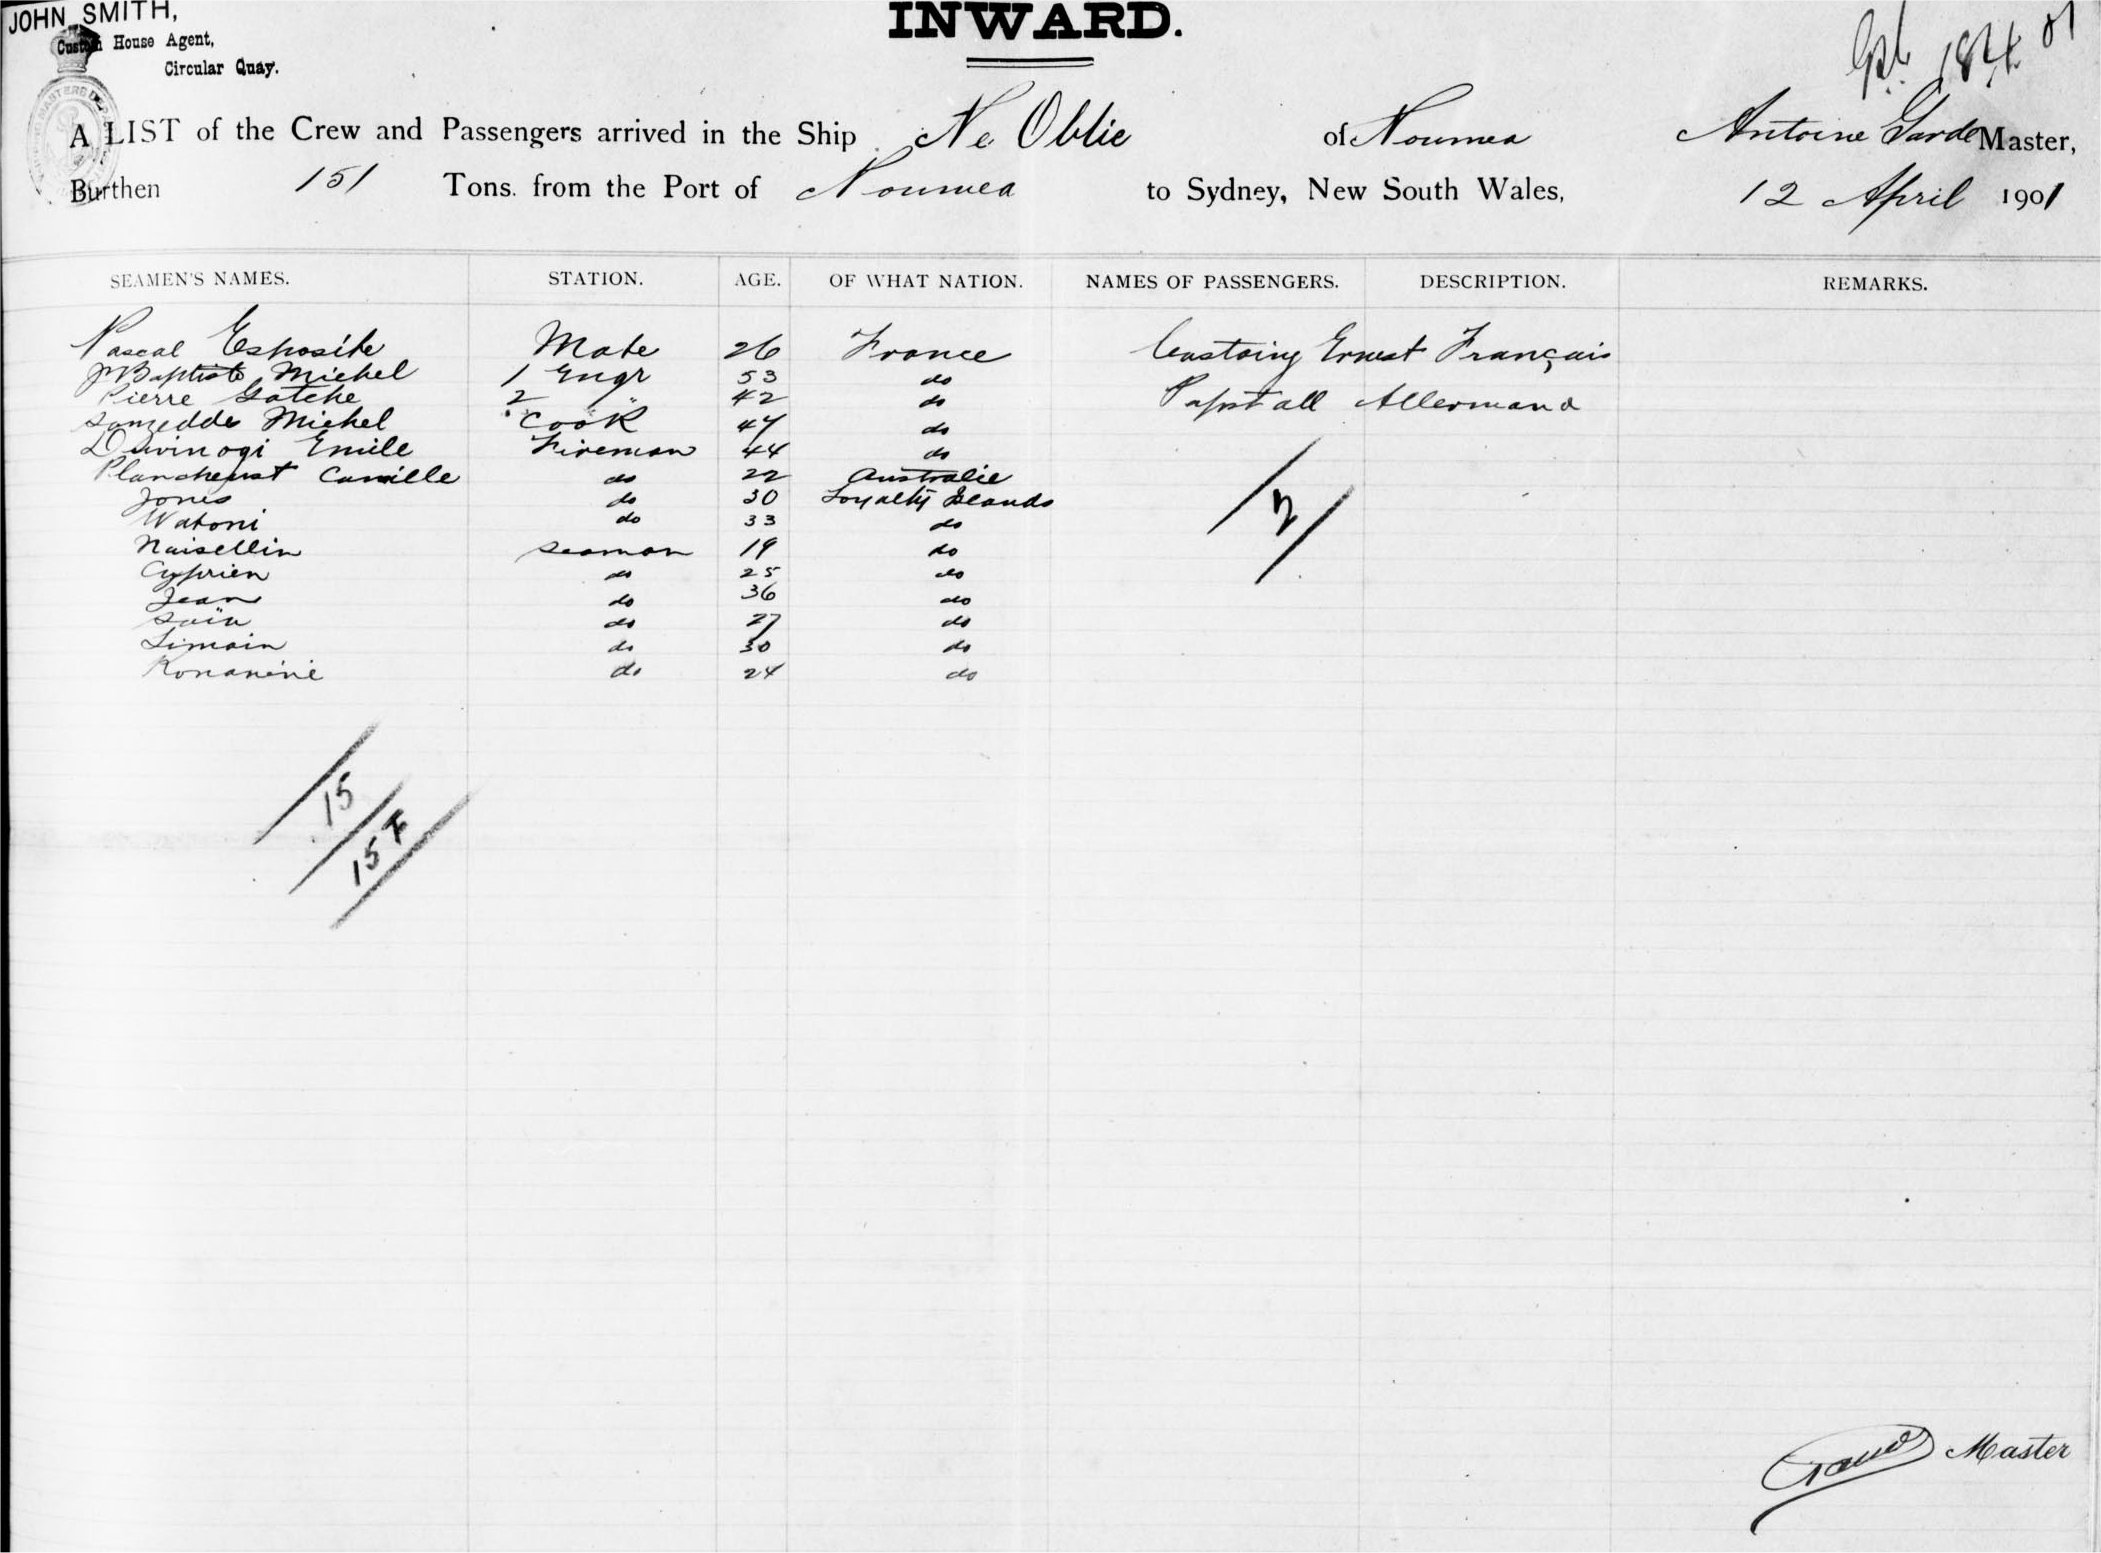 JOHN SMITH,
Custom House Agent,
Circular Quay.
INWARD.
A LIST of the Crew and Passengers arrived in the Ship Ne Oblie of Noumea Antoine Garde Master,
Burthen 151 Tons. from the Port of Noumea to Sydney, New South Wales, 12 April 1901
SEAMEN'S NAMES. STATION. AGE. OF WHAT NATION. NAMES OF PASSENGERS. DESCRIPTION. REMARKS.
Pascal Esposite Mate 26 France Castaing Ernest Français
J Baptiste Michel 1 Engr 53 do
Pierre Gatche 2 " 42 do Papstall Allermand
Michel Cook 47 do
Emile Fireman 44 do
Camille do 22 Australie
Jones do 30 Loyalty Islands
Watoni do 33 do
Naisellin seaman 19 do
Cyprien do 25 do
Jean do 36 do
Saïn do 27 do
Simain do 30 do
do 24 do
2
15
15 F
Master